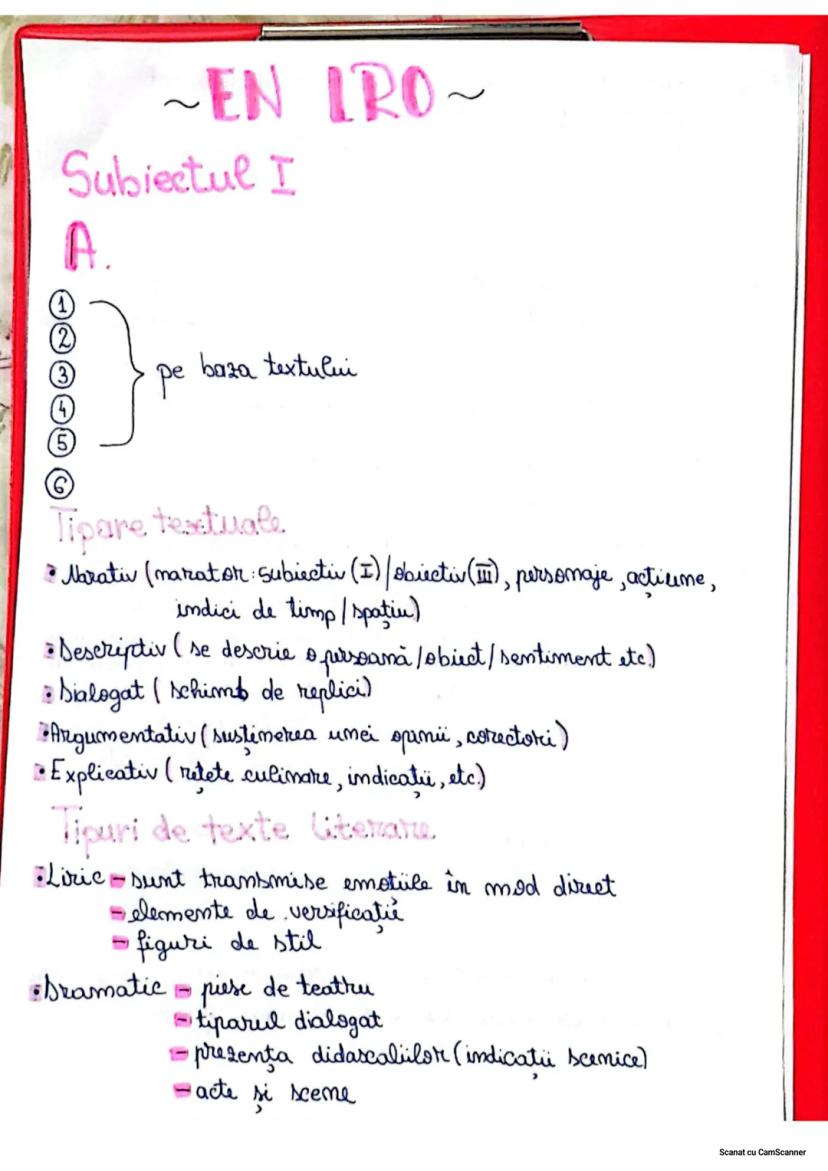 ~EN LRO~
Subiectul I
A.
1
2
3
4
5
pe baza textului
6
Tipare textuale
• Narativ (narator: subiectiv (I) / obiectiv (III), personaje, acțiune,
indici de timp / spațiu)
• Descriptiv ( se descrie o persoană / obiect / sentiment etc)
• Dialogat ( schimb de replici)
• Argumentativ ( susținerea unei opinii, corectori)
• Explicativ ( rețete culinare, indicații, etc.)
Tipuri de texte literare
• Liric - sunt transmise emoțiile în mod direct
- elemente de versificație
- figuri de stil
• Dramatic - piese de teatru
- tiparul dialogat
- prezența didascaliilor (indicații scenice)
- acte și scene
Scanat cu CamScanner